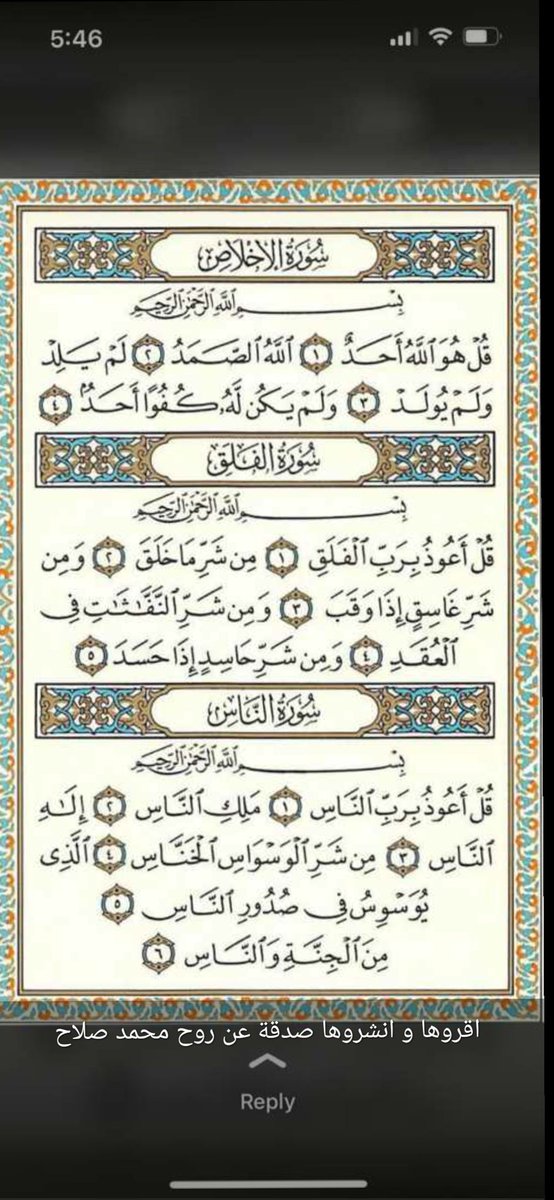 5:46
سُورَةُ الإِخْلَاصِ
بِسْمِ ٱللَّهِ ٱلرَّحْمَٰنِ ٱلرَّحِيمِ
قُلْ هُوَ ٱللَّهُ أَحَدٌ ١ ٱللَّهُ ٱلصَّمَدُ ٢ لَمْ يَلِدْ
وَلَمْ يُولَدْ ٣ وَلَمْ يَكُن لَّهُۥ كُفُوًا أَحَدٌۢ ٤
سُورَةُ الفَلَقِ
بِسْمِ ٱللَّهِ ٱلرَّحْمَٰنِ ٱلرَّحِيمِ
قُلْ أَعُوذُ بِرَبِّ ٱلْفَلَقِ ١ مِن شَرِّ مَا خَلَقَ ٢ وَمِن
شَرِّ غَاسِقٍ إِذَا وَقَبَ ٣ وَمِن شَرِّ ٱلنَّفَّٰثَٰتِ فِى
ٱلْعُقَدِ ٤ وَمِن شَرِّ حَاسِدٍ إِذَا حَسَدَ ٥
سُورَةُ النَّاسِ
بِسْمِ ٱللَّهِ ٱلرَّحْمَٰنِ ٱلرَّحِيمِ
قُلْ أَعُوذُ بِرَبِّ ٱلنَّاسِ ١ مَلِكِ ٱلنَّاسِ ٢ إِلَٰهِ
ٱلنَّاسِ ٣ مِن شَرِّ ٱلْوَسْوَاسِ ٱلْخَنَّاسِ ٤ ٱلَّذِى
يُوَسْوِسُ فِى صُدُورِ ٱلنَّاسِ ٥
مِنَ ٱلْجِنَّةِ وَٱلنَّاسِ ٦
اقروها و انشروها صدقة عن روح محمد صلاح
Reply